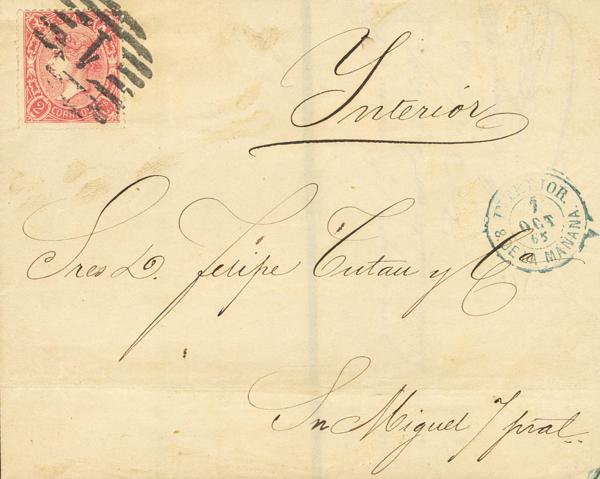 2 CORREOS
1
Ynterior
INTERIOR.
7
OCT
65
8 DE LA MAÑANA.
Sres D. Felipe Tutau y Cª
Sn Miguel 7 pral.